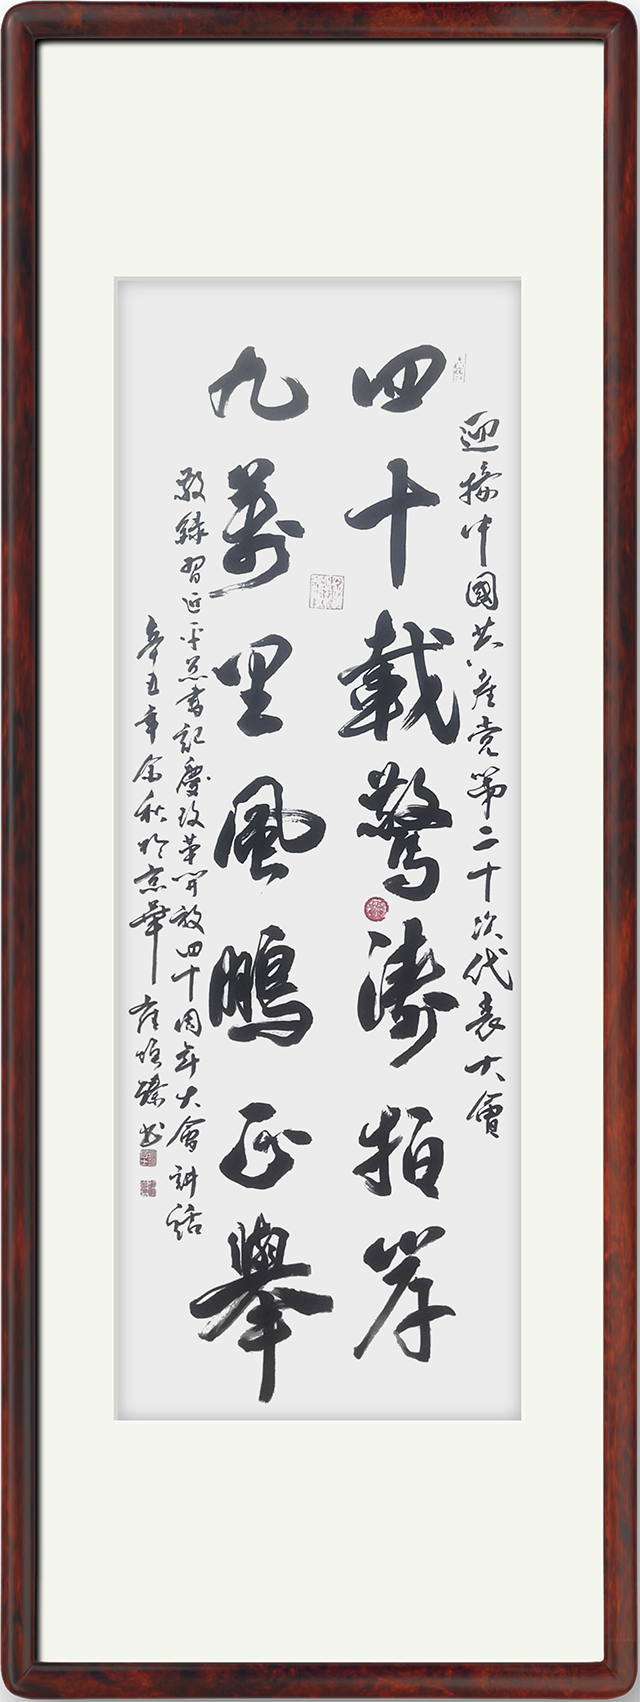 迎接中國共產党第二十次代表大會
四十載驚濤拍岸
九萬里風鵬正舉
敬録習近平总書記慶改革開放四十周年大會講話
辛丑年金秋於京華 崔培臻书